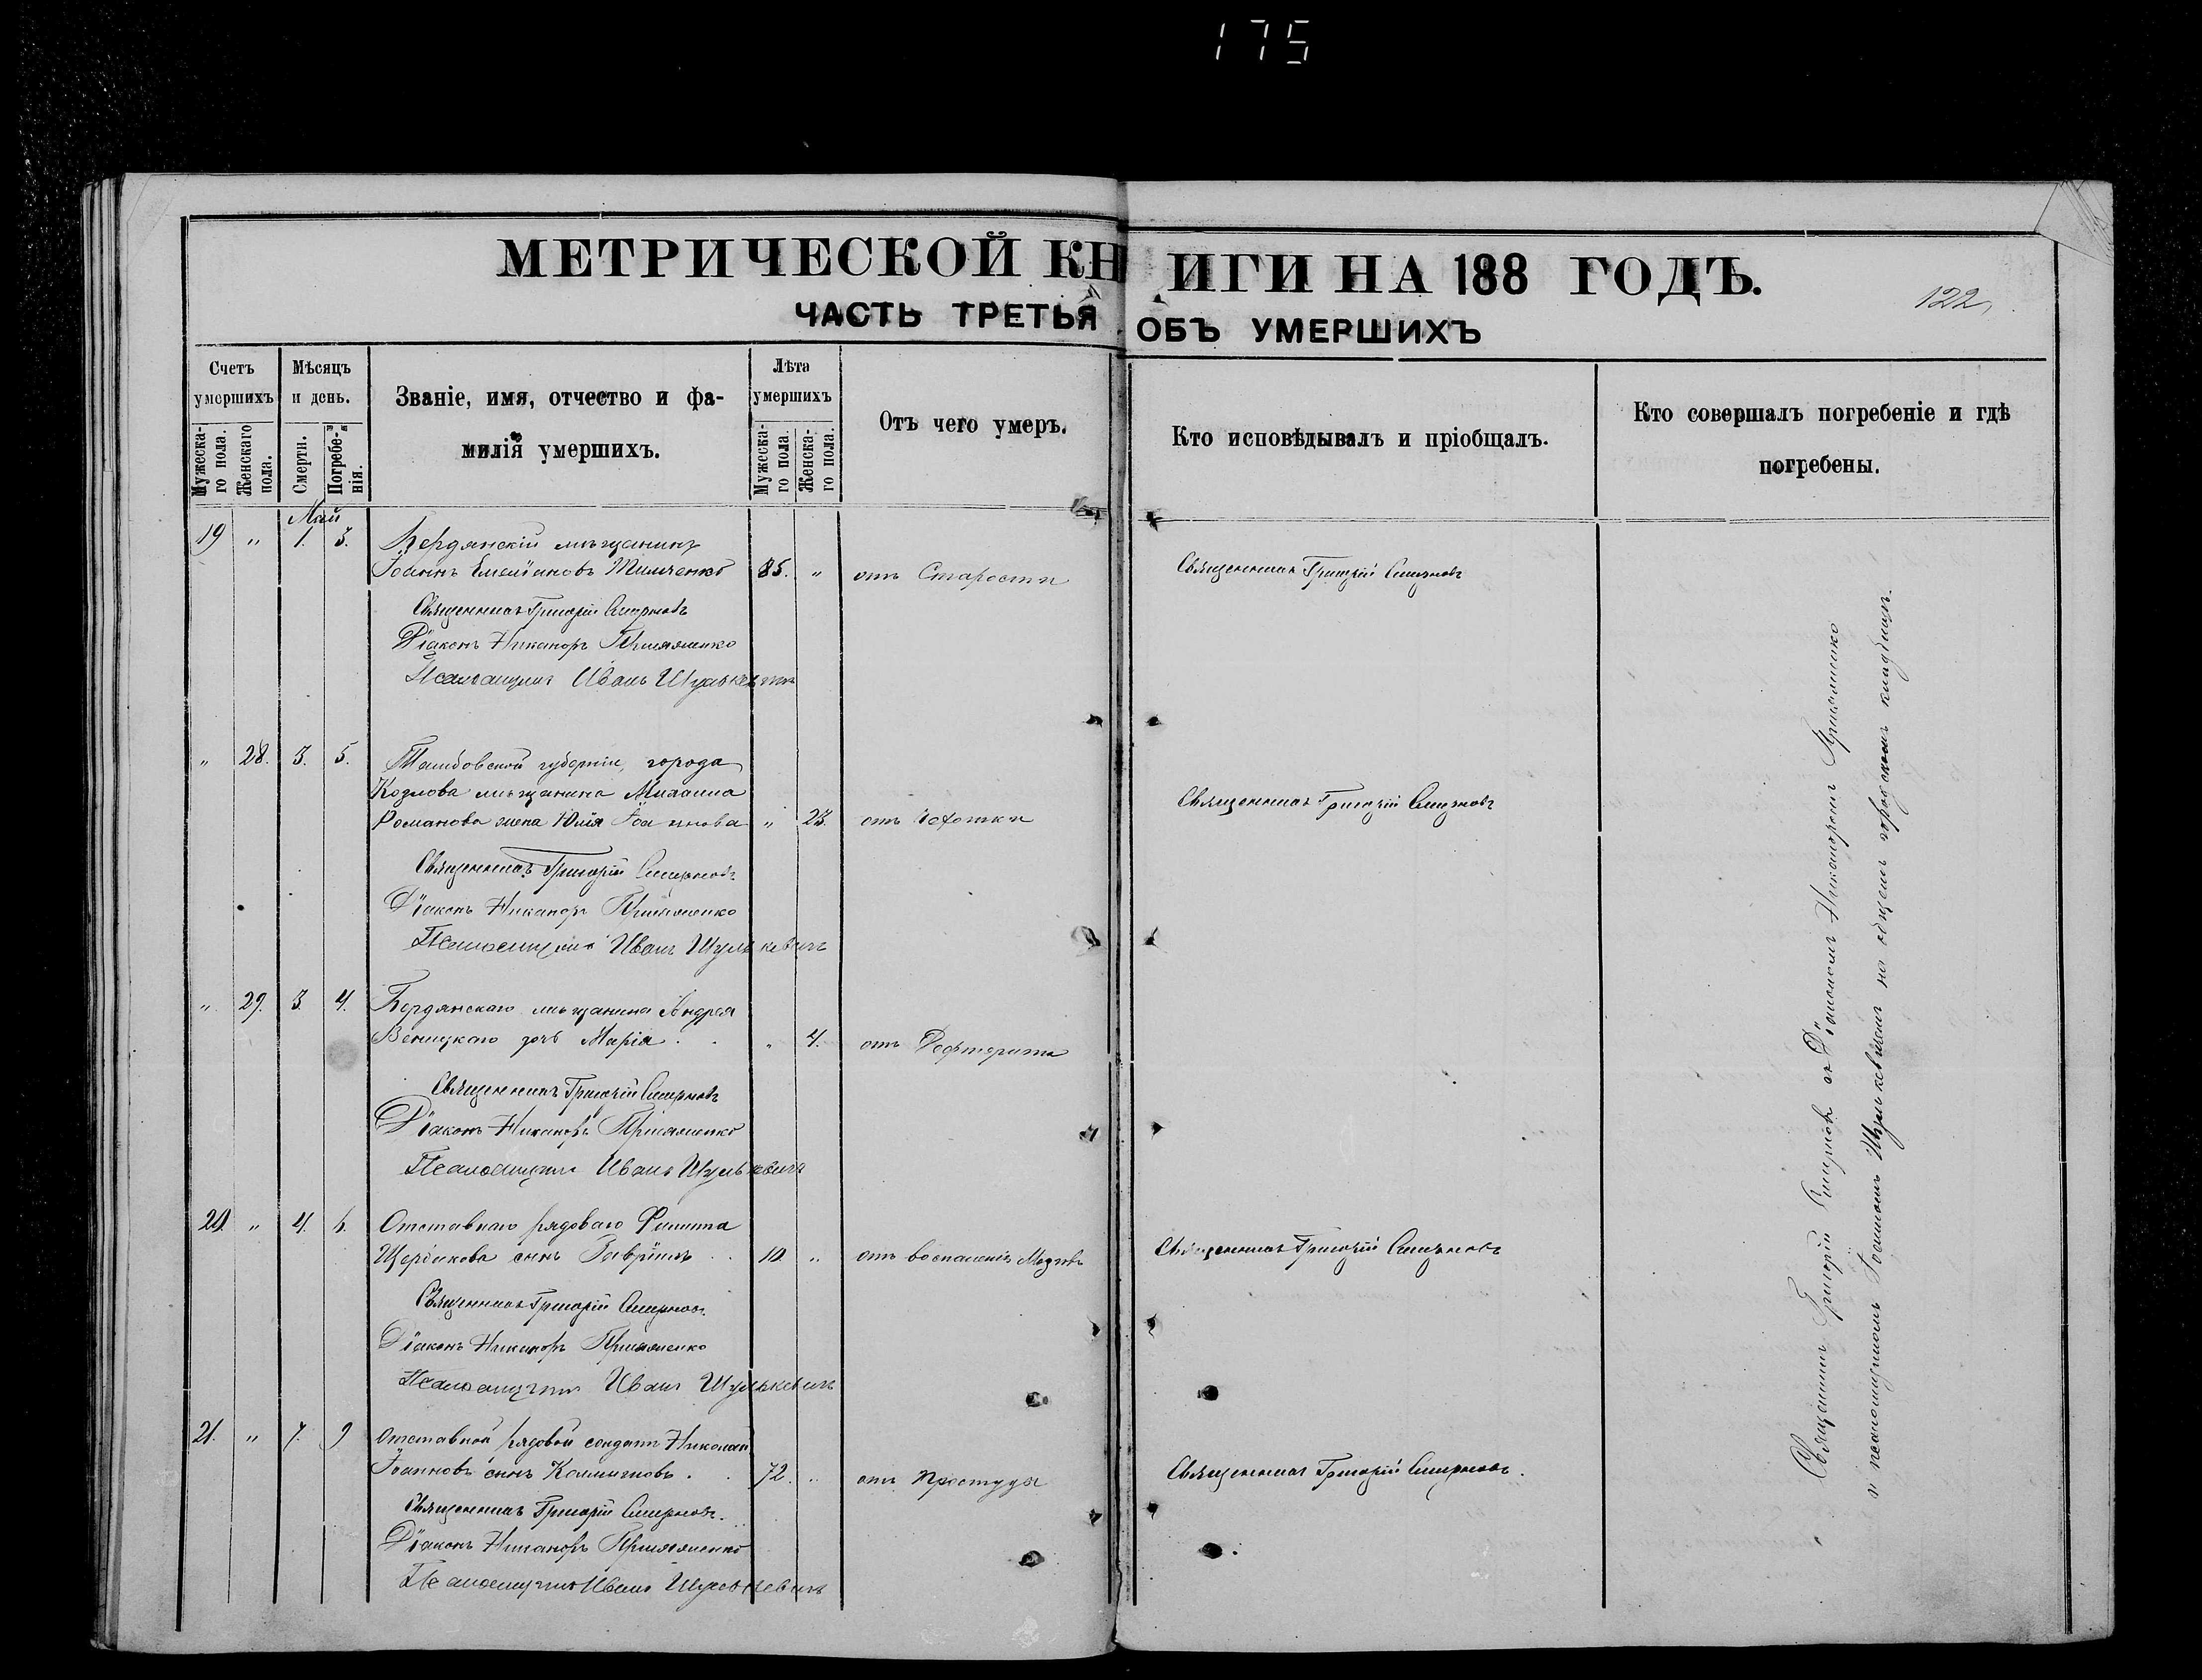 175
МЕТРИЧЕСКОЙ КНИГИ НА 188 ГОДЪ.
122
ЧАСТЬ ТРЕТЬЯ ОБЪ УМЕРШИХЪ
Счетъ умершихъ
Мужеска-
го пола.
Женскаго
пола.
Мѣсяцъ и день.
Смерти.
Погребе-
нія.
Званіе, имя, отчество и фа-
милія умершихъ.
Лѣта умершихъ
Мужеска-
го пола.
Женска-
го пола.
Отъ чего умеръ.
Кто исповѣдывалъ и пріобщалъ.
Кто совершалъ погребеніе и гдѣ
погребены.
Май
19 " 1. 3. Бердянскій мѣщанинъ
Іоаннъ Емеліановъ 85. " отъ Старости Священникъ Григорій Смирновъ
Священникъ Григорій Смирновъ
Діаконъ Никаноръ
Псаломщикъ Иванъ Шулькевичъ
" 28. 3. 5. Тамбовской губерніи, города
Козлова мѣщанина Михаила
Романова жена Юлія Іоаннова " 23. отъ Чахотки Священникъ Григорій Смирновъ
Священникъ Григорій Смирновъ
Діаконъ Никаноръ
Псаломщикъ Иванъ Шулькевичъ
" 29. 3. 4. Бердянскаго мѣщанина Андрея
дочь Марія " 4. отъ Дефтерита
Священникъ Григорій Смирновъ
Діаконъ Никаноръ
Псаломщикъ Иванъ Шулькевичъ
20. " 4. 6. Отставнаго рядоваго Филиппа
Щербикова сынъ Гавріилъ 10. " отъ воспаленія Мозговъ Священникъ Григорій Смирновъ
Священникъ Григорій Смирновъ
Діаконъ Никаноръ
Псаломщикъ Иванъ Шулькевичъ
21. " 7. 9 Отставной рядовой солдатъ Николай
Іоанновъ сынъ 72. " отъ простуды Священникъ Григорій Смирновъ.
Священникъ Григорій Смирновъ.
Діаконъ Никаноръ
Псаломщикъ Иванъ Шулькевичъ
Священникъ Григорій Смирновъ съ Діакономъ Никаноромъ
и псаломщикомъ Іоанномъ Шулькевичемъ на общемъ городскомъ кладбищѣ.